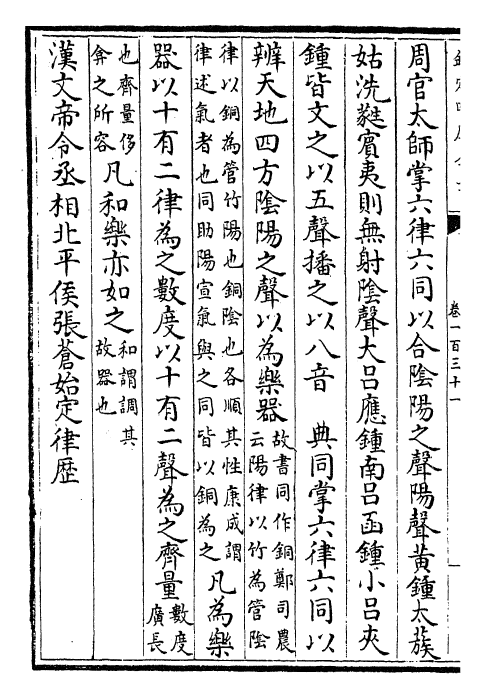 卷一百三十一
周官太師掌六律六同以合陰陽之聲陽聲黃鍾太蔟
姑洗蕤賓夷則無射陰聲大呂應鍾南呂函鍾小呂夾
鍾皆文之以五聲播之以八音　典同掌六律六同以
辨天地四方陰陽之聲以為樂器故書同作銅鄭司農云陽律以竹為管陰
律以銅為管竹陽也銅陰也各順其性康成謂律述氣者也同助陽宣氣與之同皆以銅為之凡為樂
器以十有二律為之數度以十有二聲為之齊量數度廣長
也齊量侈弇之所容凡和樂亦如之和謂調其故器也
漢文帝令丞相北平侯張蒼始定律歴